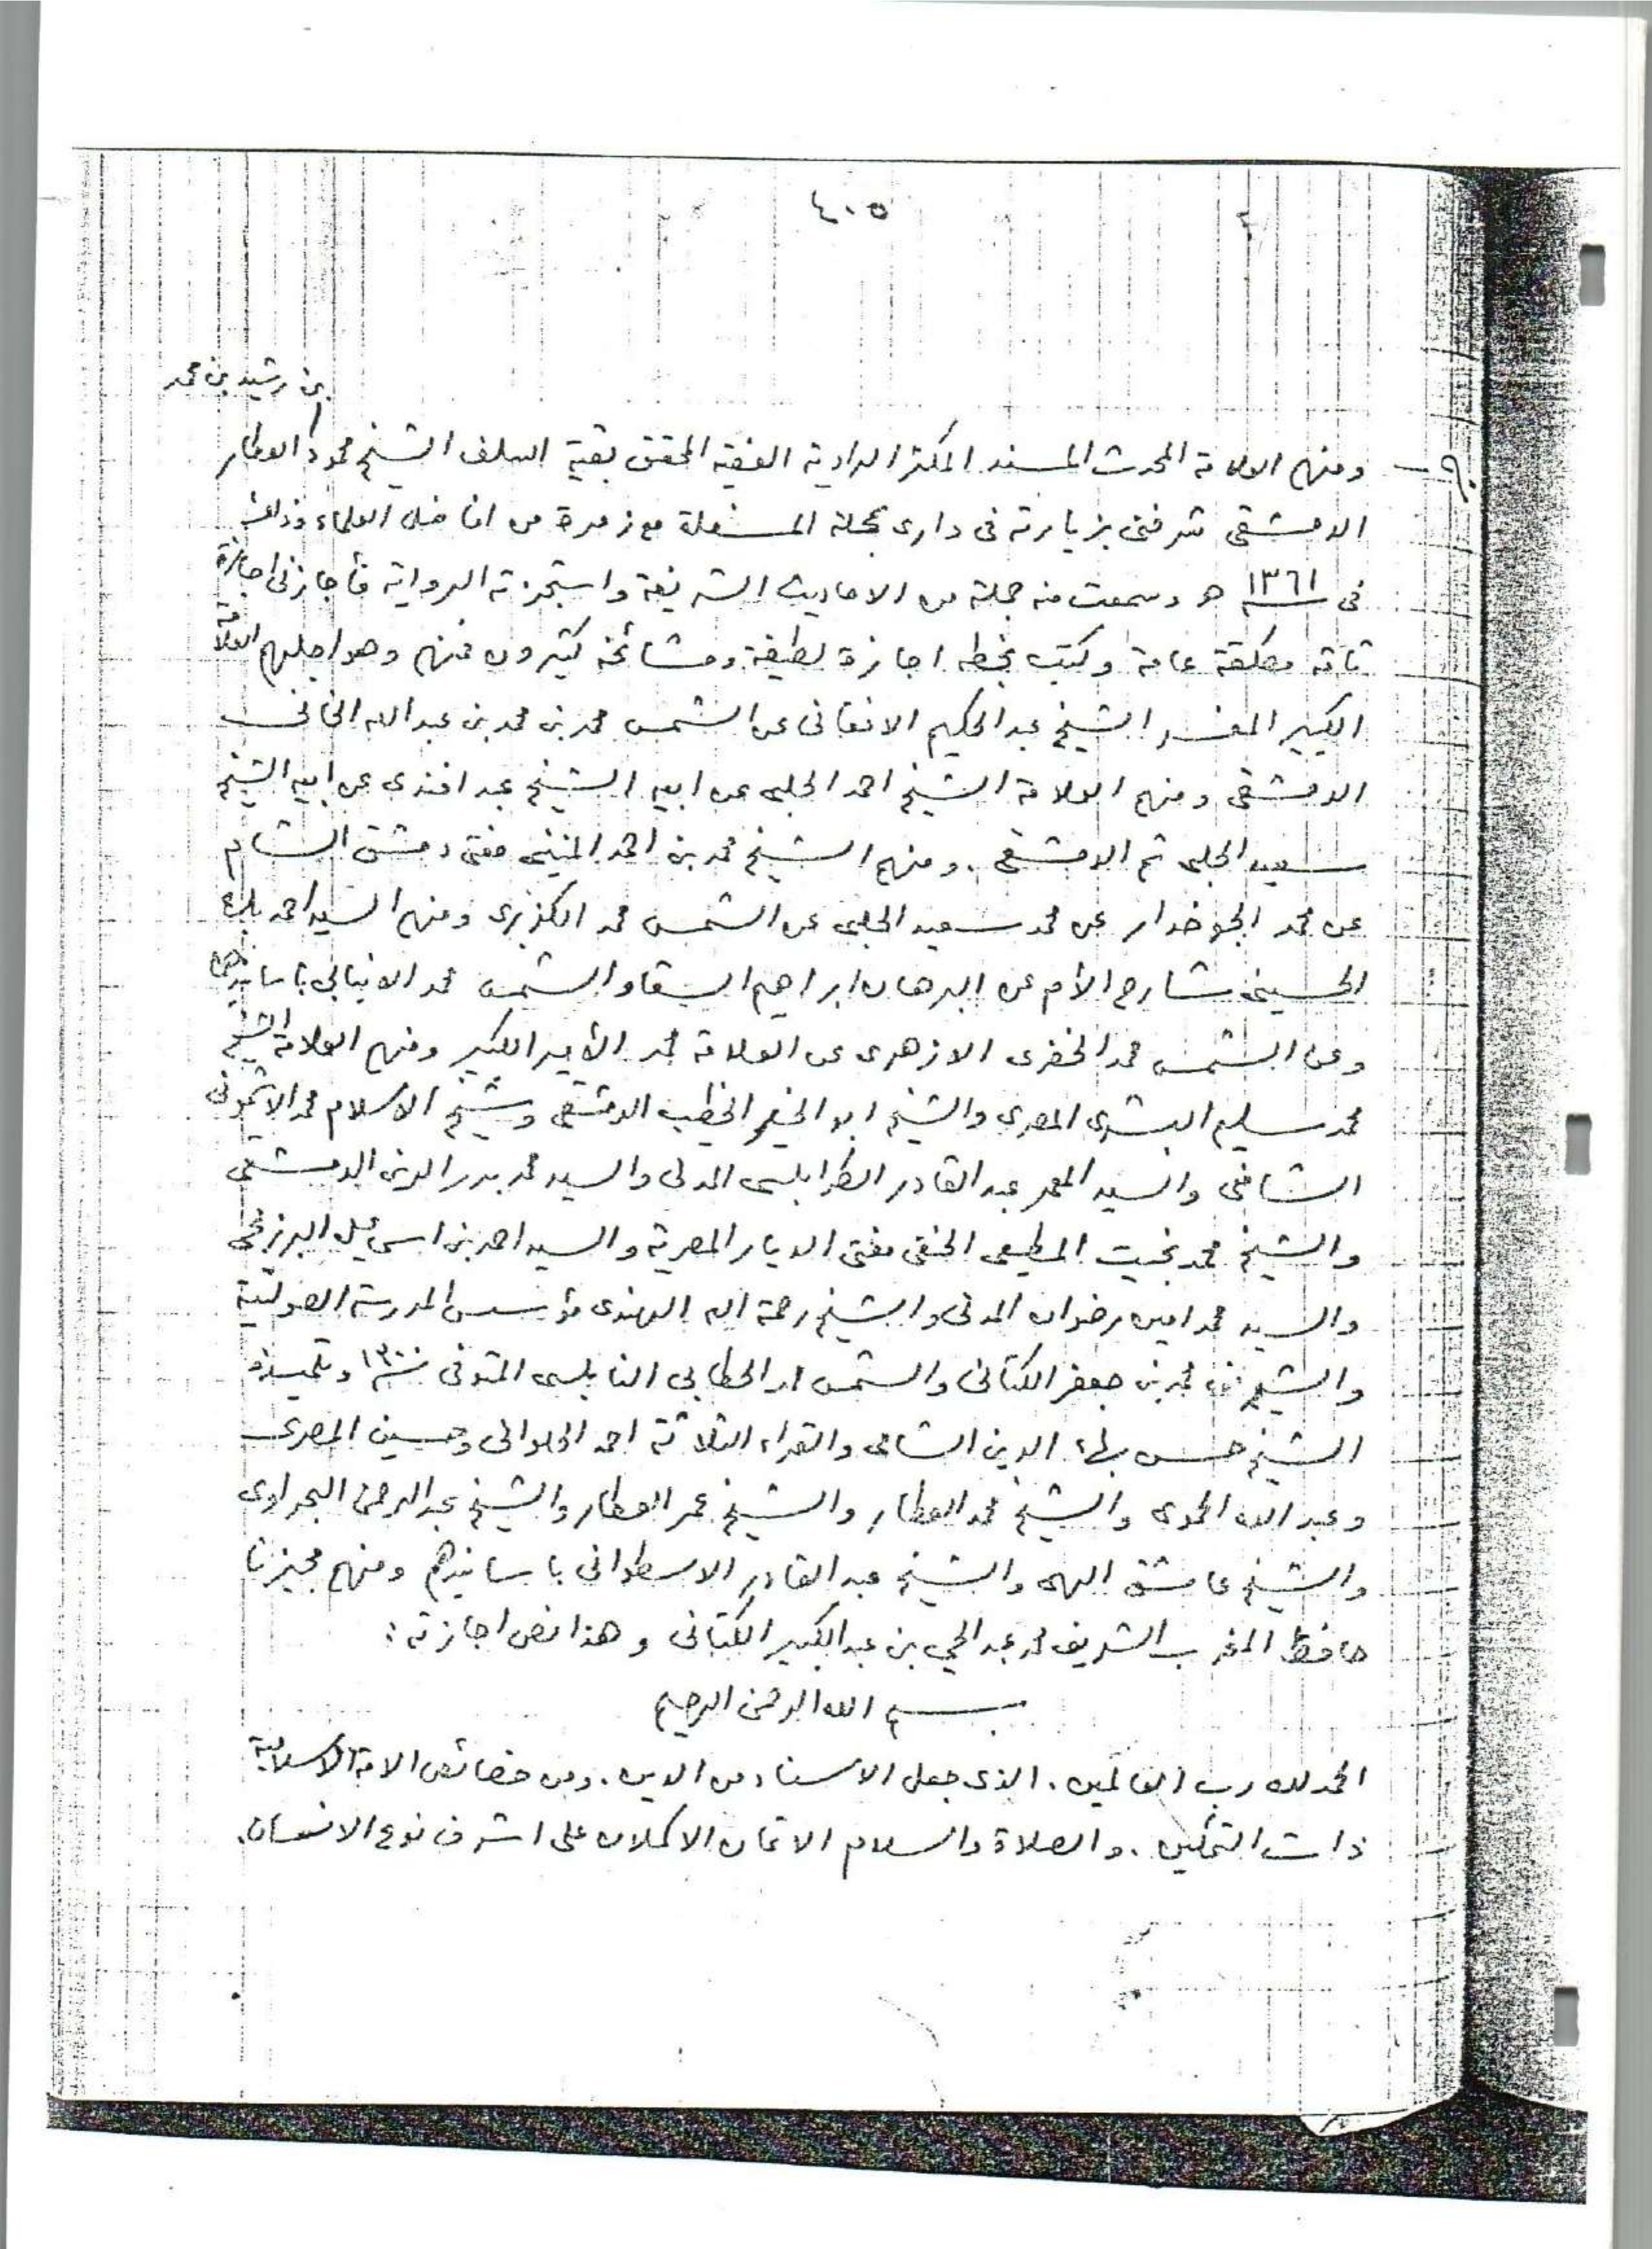 ٤٠٥
بن رشيد بن محمد
ومنهم العلامة المحدث المسند المكثر الراوية الفقيه المحقق بقية السلف الشيخ محمود العطار
الدمشقي شرفني بزيارته في داري بمحلة المسفلة مع زمرة من افاضل العلماء وذلك
في ١٣٦١ هـ وسمعت منه جملة من الاحاديث الشريفة واستجزته الرواية فأجازني اجازة
تامة مطلقة عامة وكتب بخطه اجازة لطيفة ومشائخه كثيرون منهم وهو اجلهم العلامة
الكبير المفسر الشيخ عبد الحكيم الافغاني عن الشمس محمد بن محمد بن عبد الله الخاني
الدمشقي ومنهم العلامة الشيخ احمد الحلبي عن ابيه الشيخ عبد افندي عن ابيه الشيخ
سعيد الحلبي ثم الدمشقي . ومنهم الشيخ محمد بن احمد المنيني مفتي دمشق الشام
عن محمد الجوخدار عن محمد سعيد الحلبي عن الشمس محمد الكزبري ومنهم السيد احمد بك
الحسيني شارح الأم عن البرهان ابراهيم السقا والشمس محمد الانبابي باسانيدهما
وعن الشمس محمد الخضري الازهري عن العلامة محمد الأمير الكبير ومنهم العلامة الشيخ
محمد سليم البشري المصري والشيخ ابو الخير الخطيب الدمشقي وشيخ الاسلام محمد الاشموني
الشافعي والسيد المعمر عبد القادر الطرابلسي المدني والسيد محمد بدر الدين الدمشقي
والشيخ محمد بخيت المطيعي الحنفي مفتي الديار المصرية والسيد احمد بن اسمعيل البرزنجي
والسيد محمد امين رضوان المدني والشيخ رحمة الله الهندي مؤسس المدرسة الصولتية
والشريف محمد بن جعفر الكتاني والشمس الخطابي النابلسي المتوفى سنة ١٣٠٠ وتلميذه
الشيخ حسن بهاء الدين الشامي والقراء الثلاثة احمد الحلواني وحسين المصري
وعبد الله الحموي والشيخ محمد العطار والشيخ عمر العطار والشيخ عبد الرحمن البحراوي
والشيخ عاشق الهي والشيخ عبد القادر الاسطواني باسانيدهم ومنهم مجيزنا
حافظ المغرب الشريف محمد عبد الحي بن عبد الكبير الكتاني وهذا نص اجازته :
بسم الله الرحمن الرحيم
الحمد لله رب العالمين . الذي جعل الاسناد من الدين . ومن خصائص الامة الاسلامية
ذات التمكين . والصلاة والسلام الاتمان الاكملان على اشرف نوع الانسان .